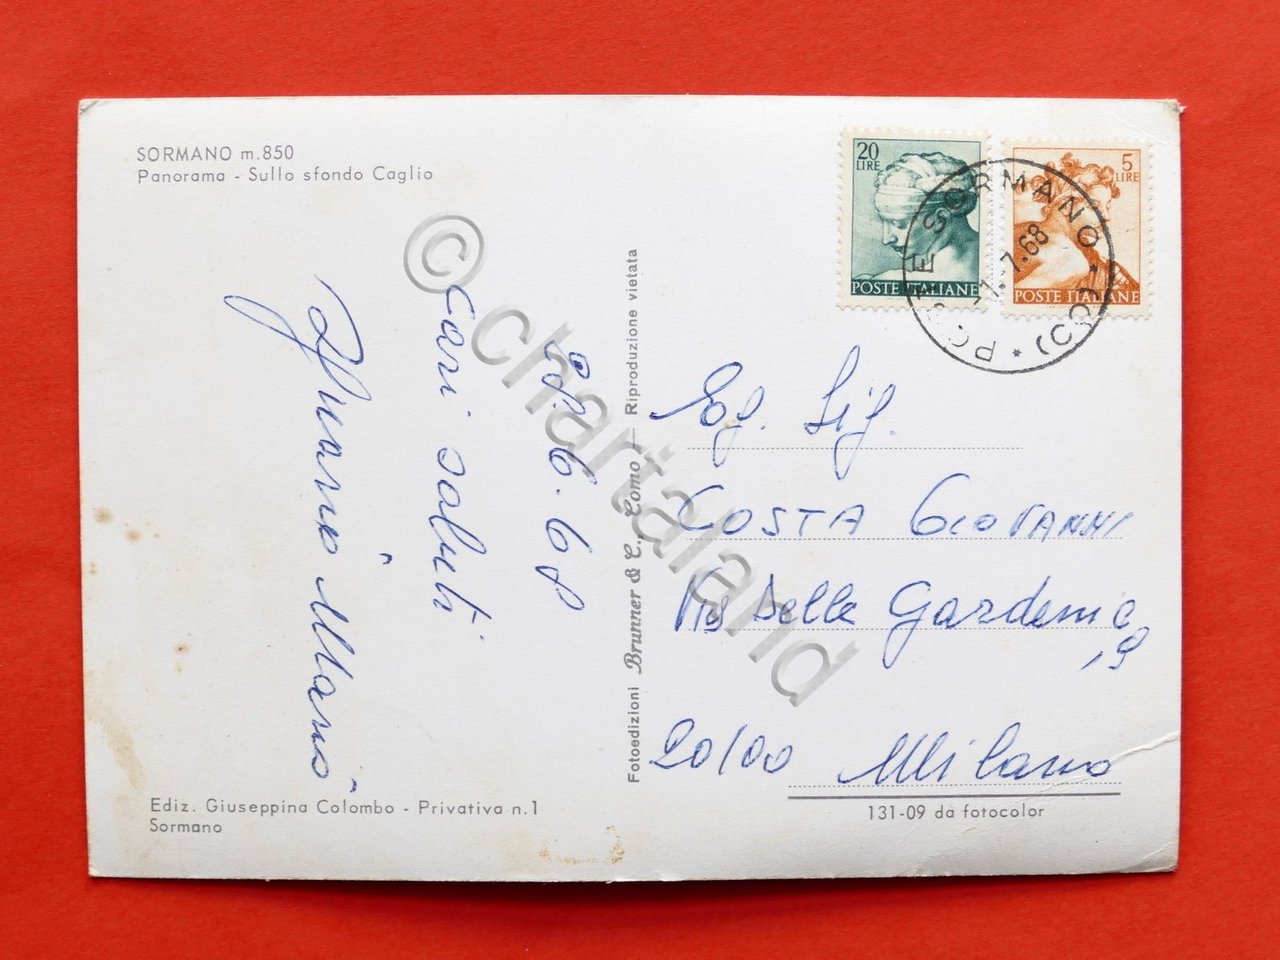 SORMANO m.850
Panorama - Sullo sfondo Caglio
20
LIRE
POSTE ITALIANE
5
LIRE
POSTE ITALIANE
POSTE SORMANO (CO)
-1.-7.68
© chartaland
.6.68
Cari saluti
Mario
Fotoedizioni Brunner & C., Como — Riproduzione vietata
Eg. Sig.
COSTA GIOVANNI
Via Delle Gardenie
, 9
20100 Milano
Ediz. Giuseppina Colombo - Privativa n.1
Sormano
131-09 da fotocolor